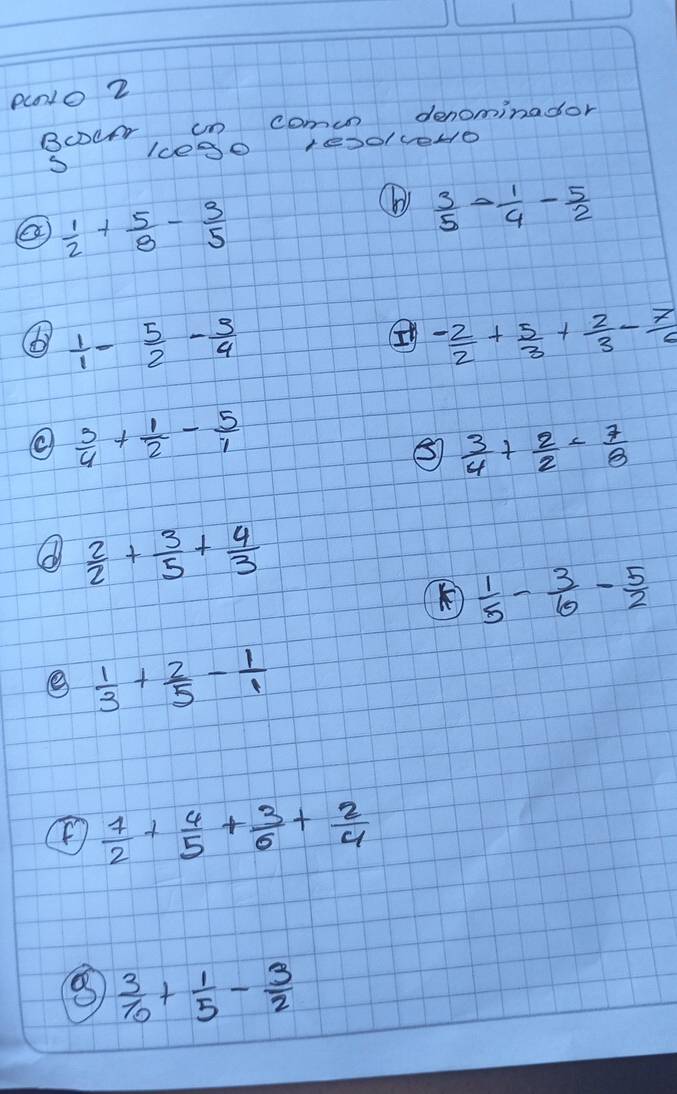 punto 2
Buscar un comun denominador
y luego resolverlo
a) 1/2 + 5/8 - 3/5
h) 3/5 - 1/4 - 5/2
b) 1/1 - 5/2 - 3/4
I) -2/2 + 5/3 + 2/3 - 7/6
c) 3/4 + 1/2 - 5/1
J) 3/4 + 2/2 - 7/8
d) 2/2 + 3/5 + 4/3
K) 1/5 - 3/10 - 5/2
e) 1/3 + 2/5 - 1/1
f) 1/2 + 4/5 + 3/6 + 2/4
g) 3/10 + 1/5 - 3/2